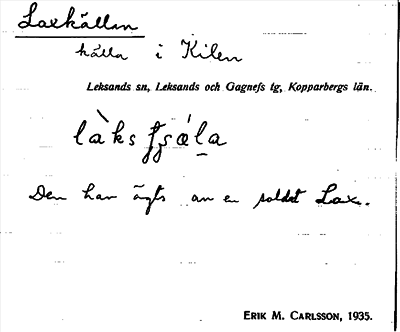 Laxkällan
källa i Kilen
Leksands sn, Leksands och Gagnefs tg, Kopparbergs län.
Den har ägts av en soldat Lax.
ERIK M. CARLSSON, 1935.